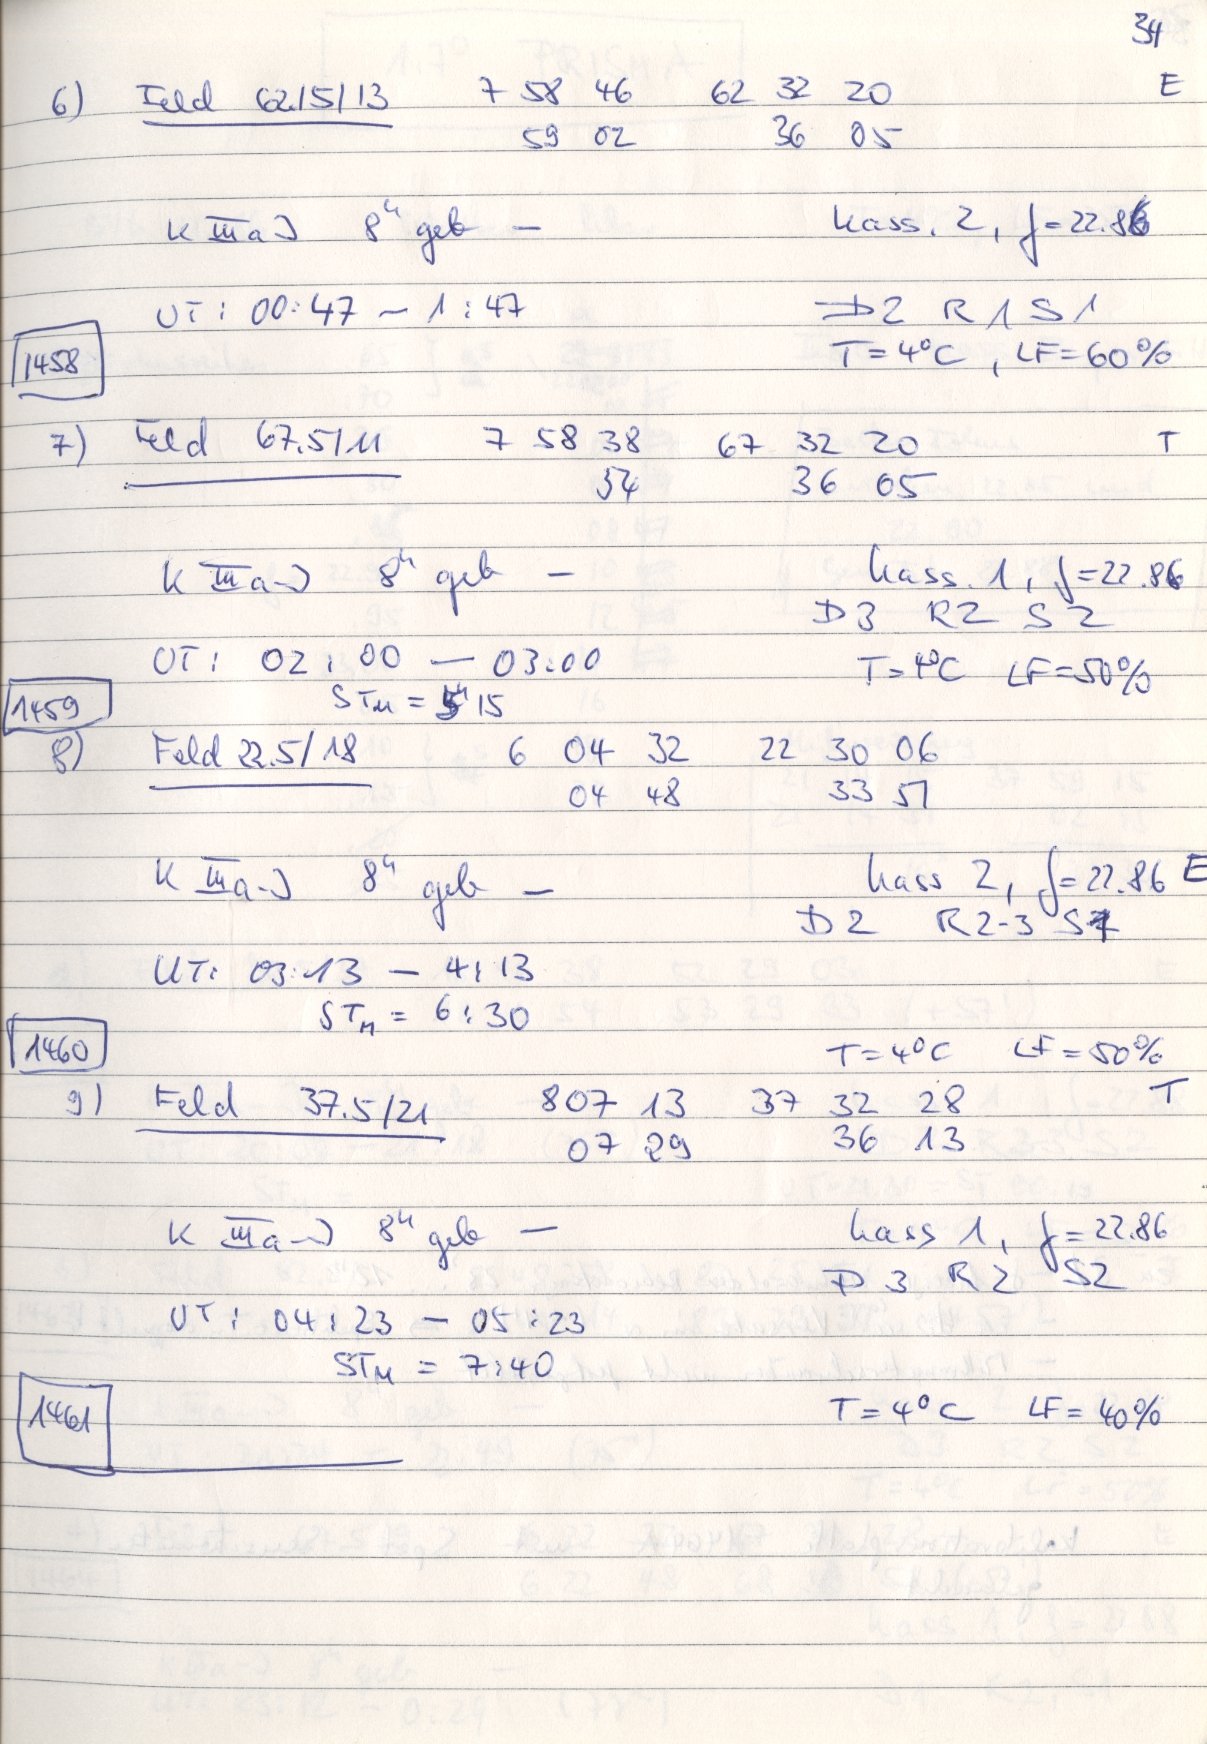 34
6) Feld 62.15/13 7 58 46 62 32 20 E
59 02 36 05
K IIIa-J 8h geb — Kass. 2, f=22.86
UT: 00:47 – 1:47 D2 R1 S1
1458 T=4°C, LF=60%
7) Feld 67.5/11 7 58 38 67 32 20 T
54 36 05
K IIIa-J 8h geb — Kass. 1, f=22.86
D3 R2 S2
UT: 02:00 — 03:00 T=4°C LF=50%
STM = 5h 15
1459
8) Feld 22.5/18 6 04 32 22 30 06
04 48 33 51
K IIIa-J 8h geb — Kass 2, f=22.86 E
D2 R2-3 S1
UT: 03:13 – 4:13
STM = 6:30
1460 T=4°C LF=50%
9) Feld 37.5/21 8 07 13 37 32 28 T
07 29 36 13
K IIIa-J 8h geb — Kass 1, f=22.86
D3 R2 S2
UT: 04:23 – 05:23
STM = 7:40
1461 T=4°C LF=40%